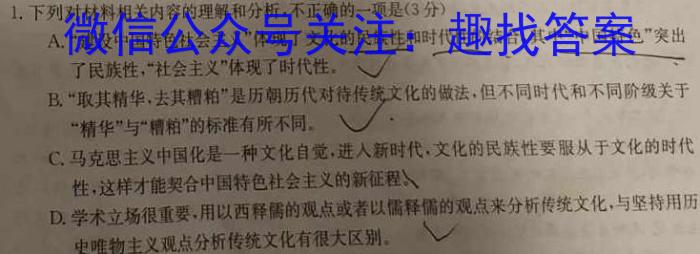 1.下列对材料相关内容的理解和分析,不正确的一项是(3分)
微信公众号关注：趣找答案
A.
和时代
色”突出
了民族性,“社会主义”体现了时代性。
B.“取其精华,去其糟粕”是历朝历代对待传统文化的做法,但不同时代和不同阶级关于
“精华”与“糟粕”的标准有所不同。
C.马克思主义中国化是一种文化自觉,进入新时代,文化的民族性要服从于文化的时代
性,这样才能契合中国特色社会主义的新征程。
D.学术立场很重要,用以西释儒的观点或者以儒释儒的观点来分析传统文化,与坚持用历
史唯物主义观点分析传统文化有很大区别。